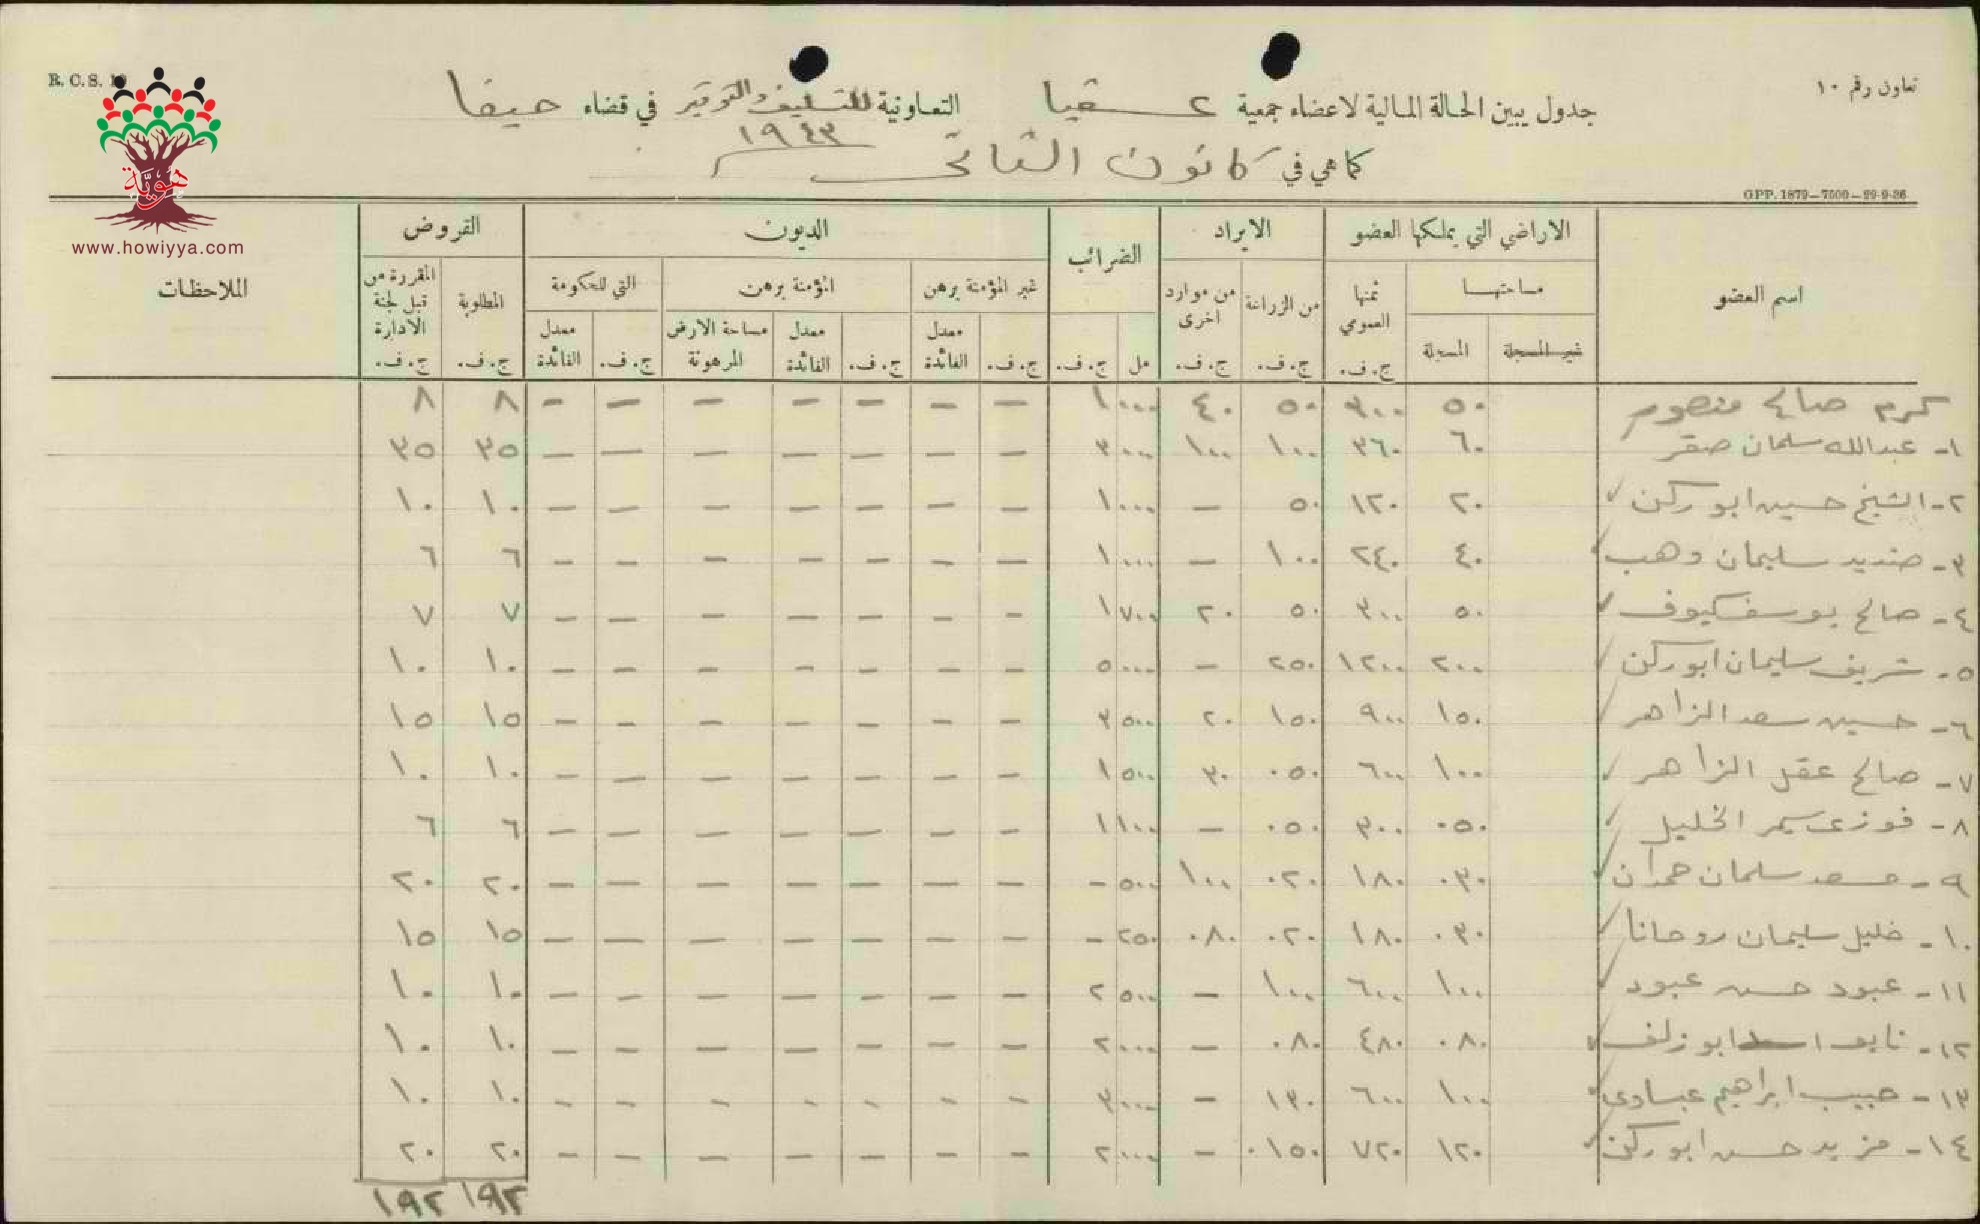 تعاون رقم ١٠
R. C. S. 10
جدول يبين الحالة المالية لاعضاء جمعية عسفيا التعاونية للتسليف والتوفير في قضاء حيفا
كما هي في كانون الثاني ١٩٤٣
GPP. 1879—7000—29-9-36
هوية
www.howiyya.com
اسم العضو | الاراضي التي يملكها العضو | الايراد | الضرائب | الديون | القروض | الملاحظات
مساحتها | ثمنها العمومي | من الزراعة | من موارد اخرى | غير المؤمنة برهن | المؤمنة برهن | التي للحكومة | المطلوبة | المقررة من قبل لجنة الادارة
غير المسجلة | المسجلة | ج. ف. | ج. ف. | ج. ف. | مل | ج. ف. | ج. ف. | معدل الفائدة | ج. ف. | معدل الفائدة | مساحة الارض المرهونة | ج. ف. | معدل الفائدة | ج. ف. | ج. ف.
كرم صالح منصور ٥٠ ٣٠٠ ٥٠ ٤٠ ١٠٠٠ — — — — — — — ٨ ٨
١- عبدالله سلمان صقر ٦٠ ٣٦٠ ١٠٠ ١٠٠ ٣٠٠٠ — — — — — — — ٣٥ ٣٥
٢- الشيخ حسين ابو ركن ٢٠ ١٢٠ ٥٠ — ١٠٠٠ — — — — — — — ١٠ ١٠
٣- صنديد سليمان وهب ٤٠ ٢٤٠ ١٠٠ — ١٠٠٠ — — — — — — — ٦ ٦
٤- صالح يوسف كيوف ٥٠ ٣٠٠ ٥٠ ٢٠ ١٧٠٠ — — — — — — — ٧ ٧
٥- شريف سليمان ابو ركن ٢٠٠ ١٢٠٠ ٢٥٠ — ٥٠٠٠ — — — — — — — ١٠ ١٠
٦- حسين سعد الزاهر ١٥٠ ٩٠٠ ١٥٠ ٢٠ ٣٥٠٠ — — — — — — — ١٥ ١٥
٧- صالح عقل الزاهر ١٠٠ ٦٠٠ ٠٥٠ ٣٠ ١٥٠٠ — — — — — — — ١٠ ١٠
٨- فوزي الخليل ٠٥٠ ٣٠٠ ٠٥٠ — ١١٠٠ — — — — — — — ٦ ٦
٩- سلمان حمدان ٠٣٠ ١٨٠ ٠٢٠ ١٠٠ ٥٠٠ — — — — — — — — ٢٠ ٢٠
١٠- خليل سليمان روحانا ٠٣٠ ١٨٠ ٠٢٠ ٠٨٠ ٢٥٠ — — — — — — — — ١٥ ١٥
١١- عبود حسن عبود ١٠٠ ٦٠٠ ١٠٠ — ٢٥٠٠ — — — — — — — ١٠ ١٠
١٢- نايف ابو زلف ٠٨٠ ٤٨٠ ٠٨٠ — ٢٠٠٠ — — — — — — — ١٠ ١٠
١٣- حبيب ابراهيم عبساوي ١٠٠ ٦٠٠ ١٣٠ — ٣٠٠٠ — — — — — — — ١٠ ١٠
١٤- مزيد حسن ابو ركن ١٢٠ ٧٢٠ ١٥٠ — ٢٠٠٠ — — — — — — — ٢٠ ٢٠
١٩٢ ١٩٢